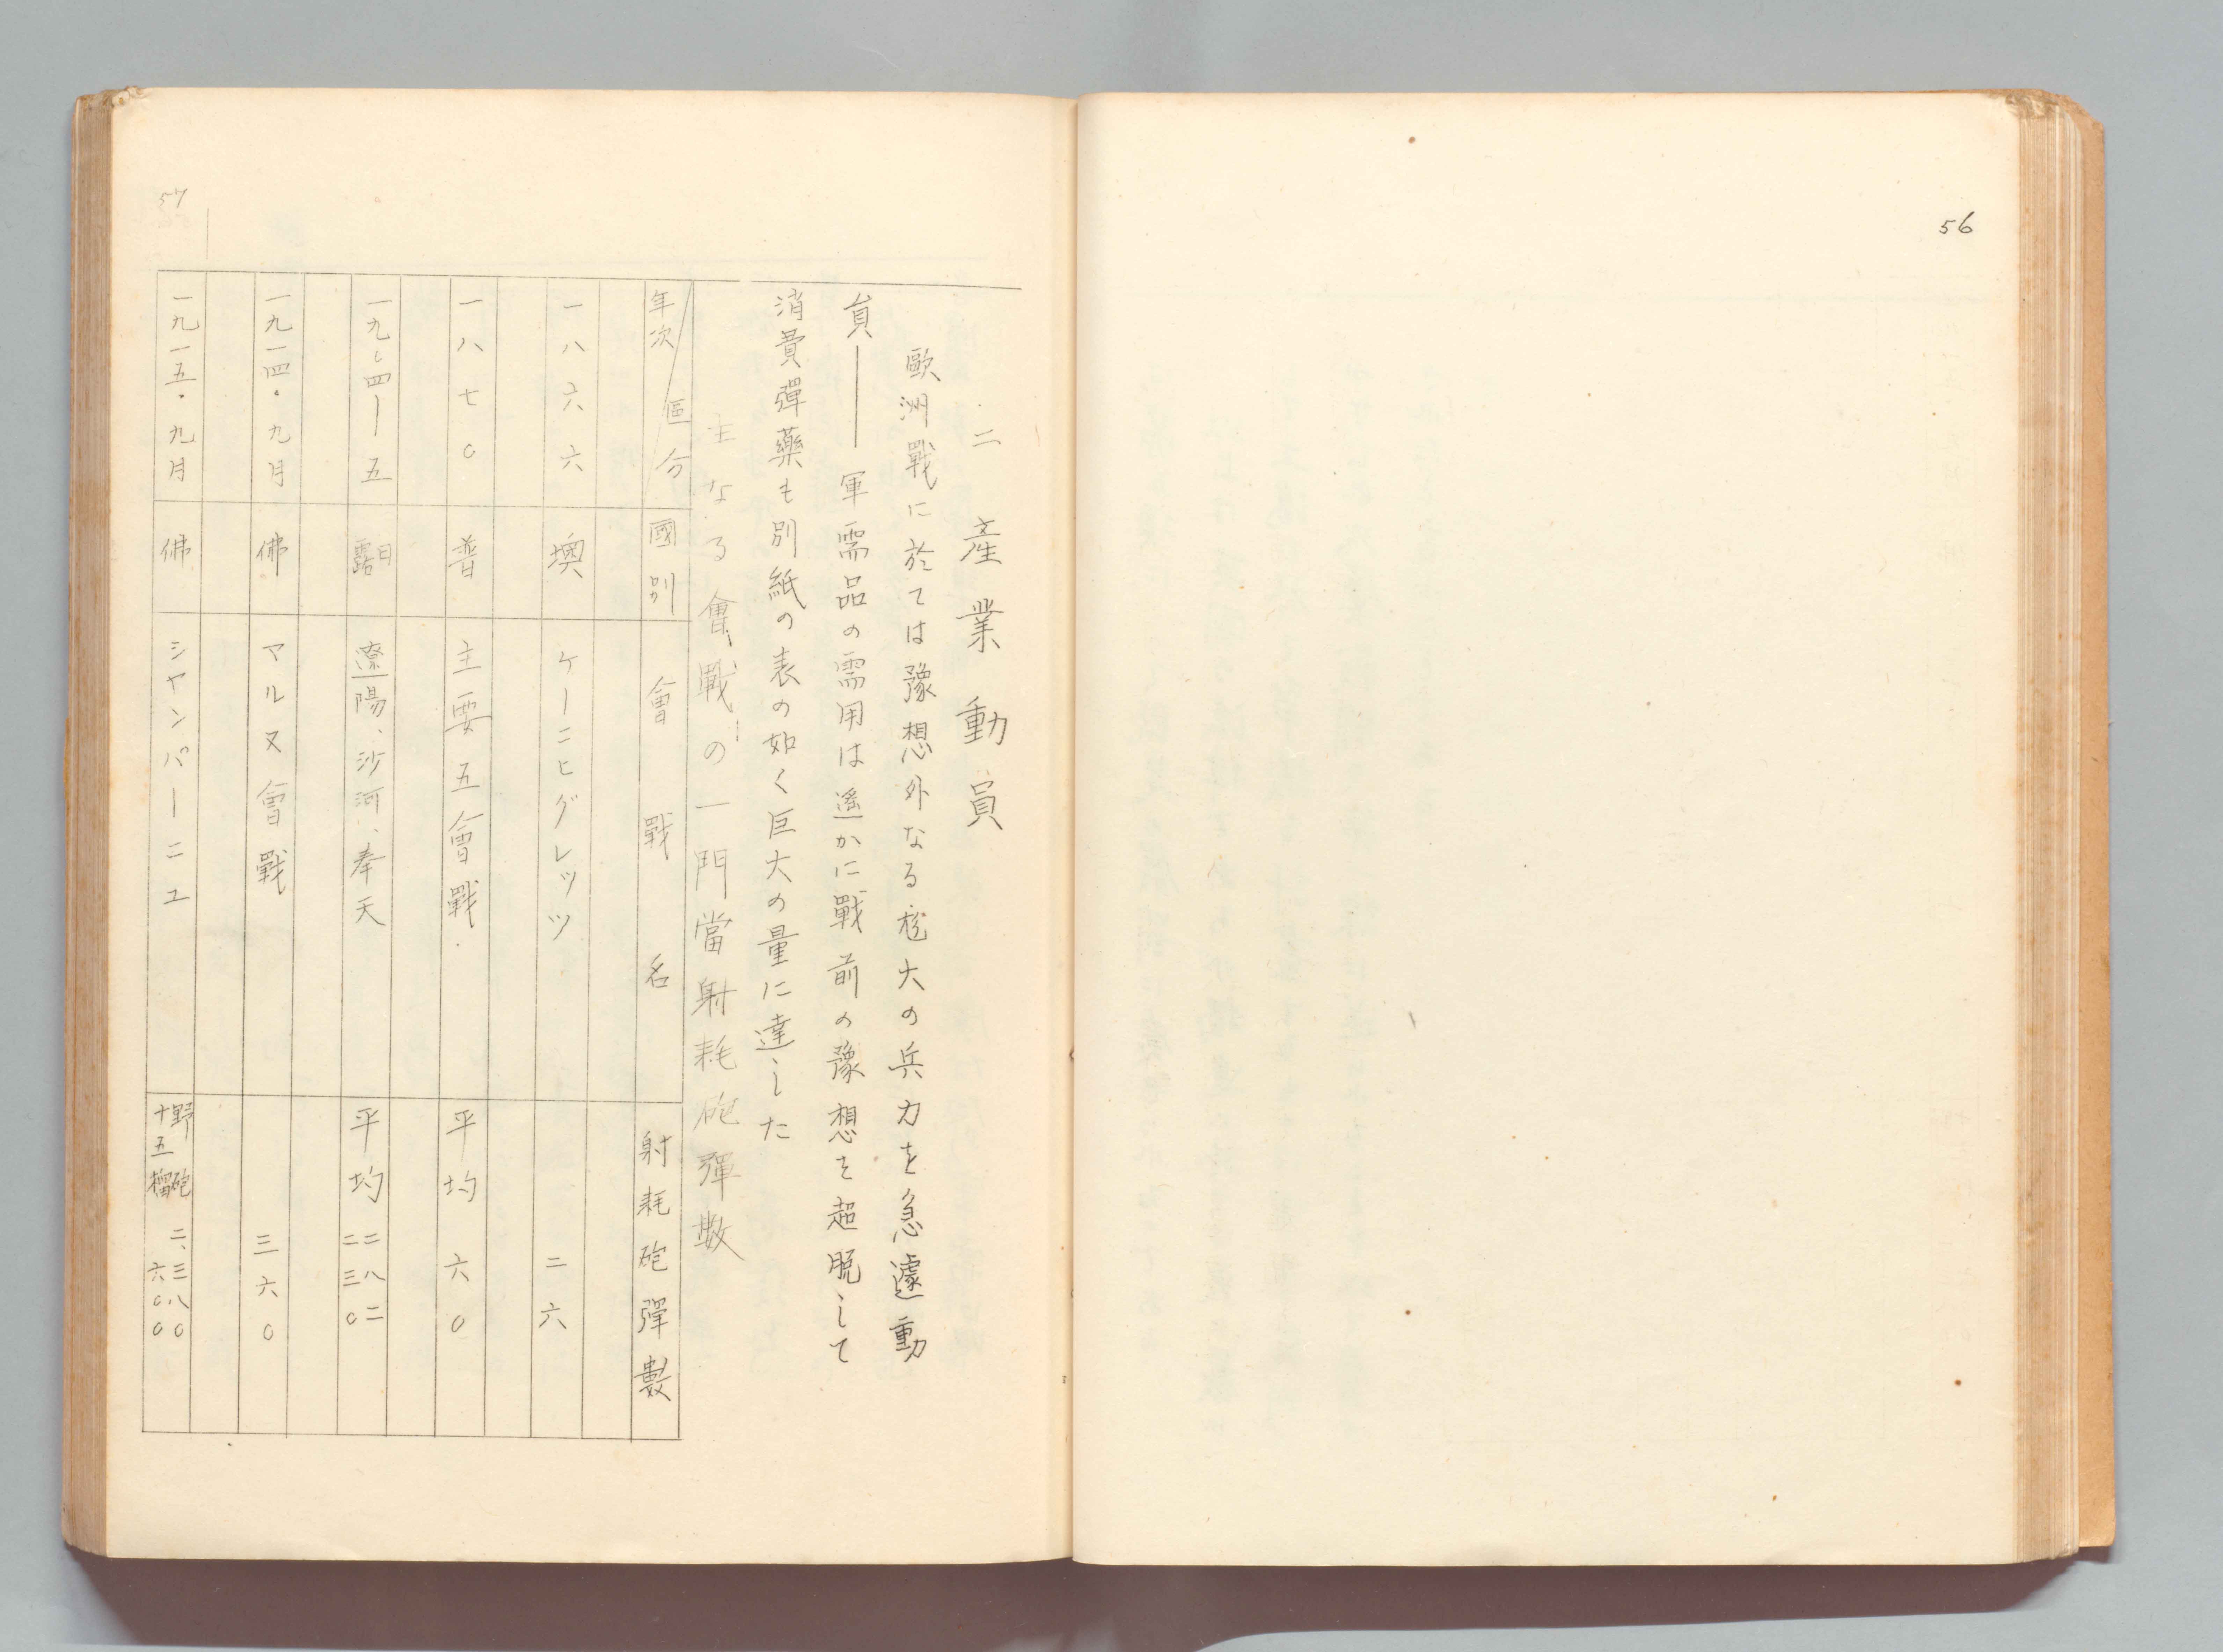 56
57
二産業動員
歐洲戰に於ては豫想外なる厖大の兵力を急遽動
員――軍需品の需用は遙かに戰前の豫想を超脱して
消費彈藥も別紙の表の如く巨大の量に達した
主なる會戰の一門當射耗砲彈数
年次 區分 國別 會戰名 射耗砲彈數
一八六六 墺 ケーニヒグレッツ 二六
一八七〇 普 主要五會戰 平均 六〇
一九〇四―五 日露 遼陽、沙河、奉天 平均 二八二 二三〇
一九一四・九月 佛 マルヌ會戰 三六〇
一九一五・九月 佛 シヤンパーニユ 野砲 二、三八〇 十五榴 六〇〇